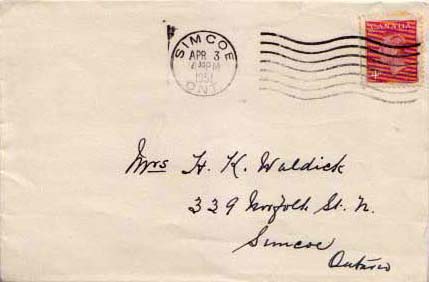 SIMCOE
APR 3
PM
1951
ONT.
CANADA
4
Mrs H. K. Waldick
339 Norfolk St. N.
Simcoe
Ontario